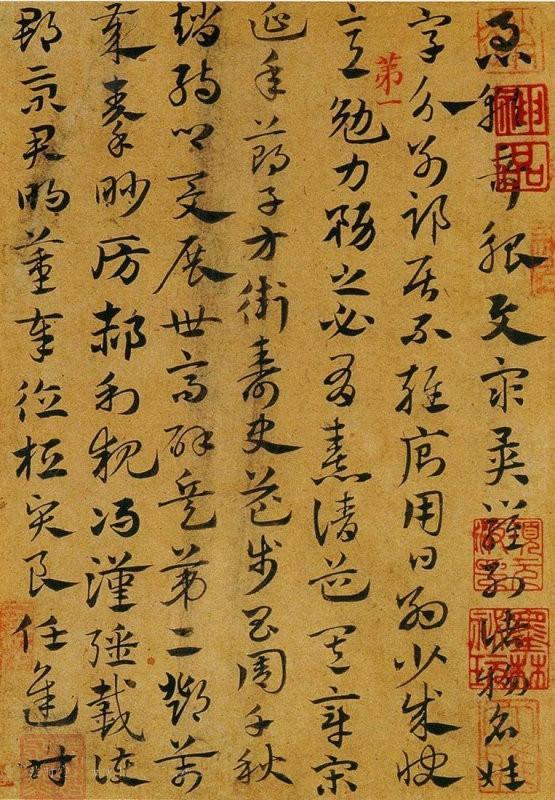 急就奇觚與眾異羅列諸物名姓
字分別部居不雜廁用日約少誠快
第一
意勉力務之必有憙請道其章宋
延年鄭子方衛壽史步昌周千秋
趙孺卿爰展世高辟兵第二鄧萬
歲秦眇房郝利親馮漢彊戴護
郡景君明董奉德桓賢良任逢時